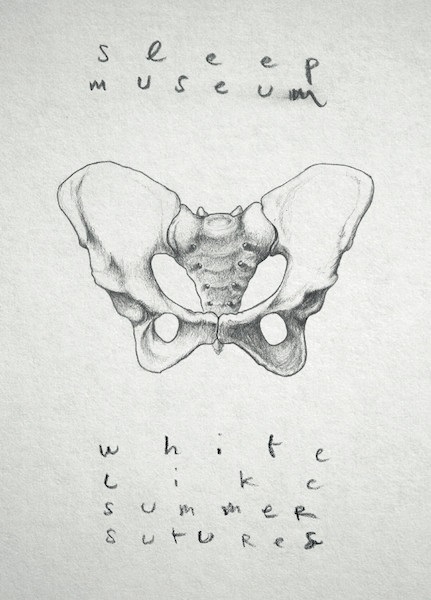 sleep
museum
white
like
summer
sutures